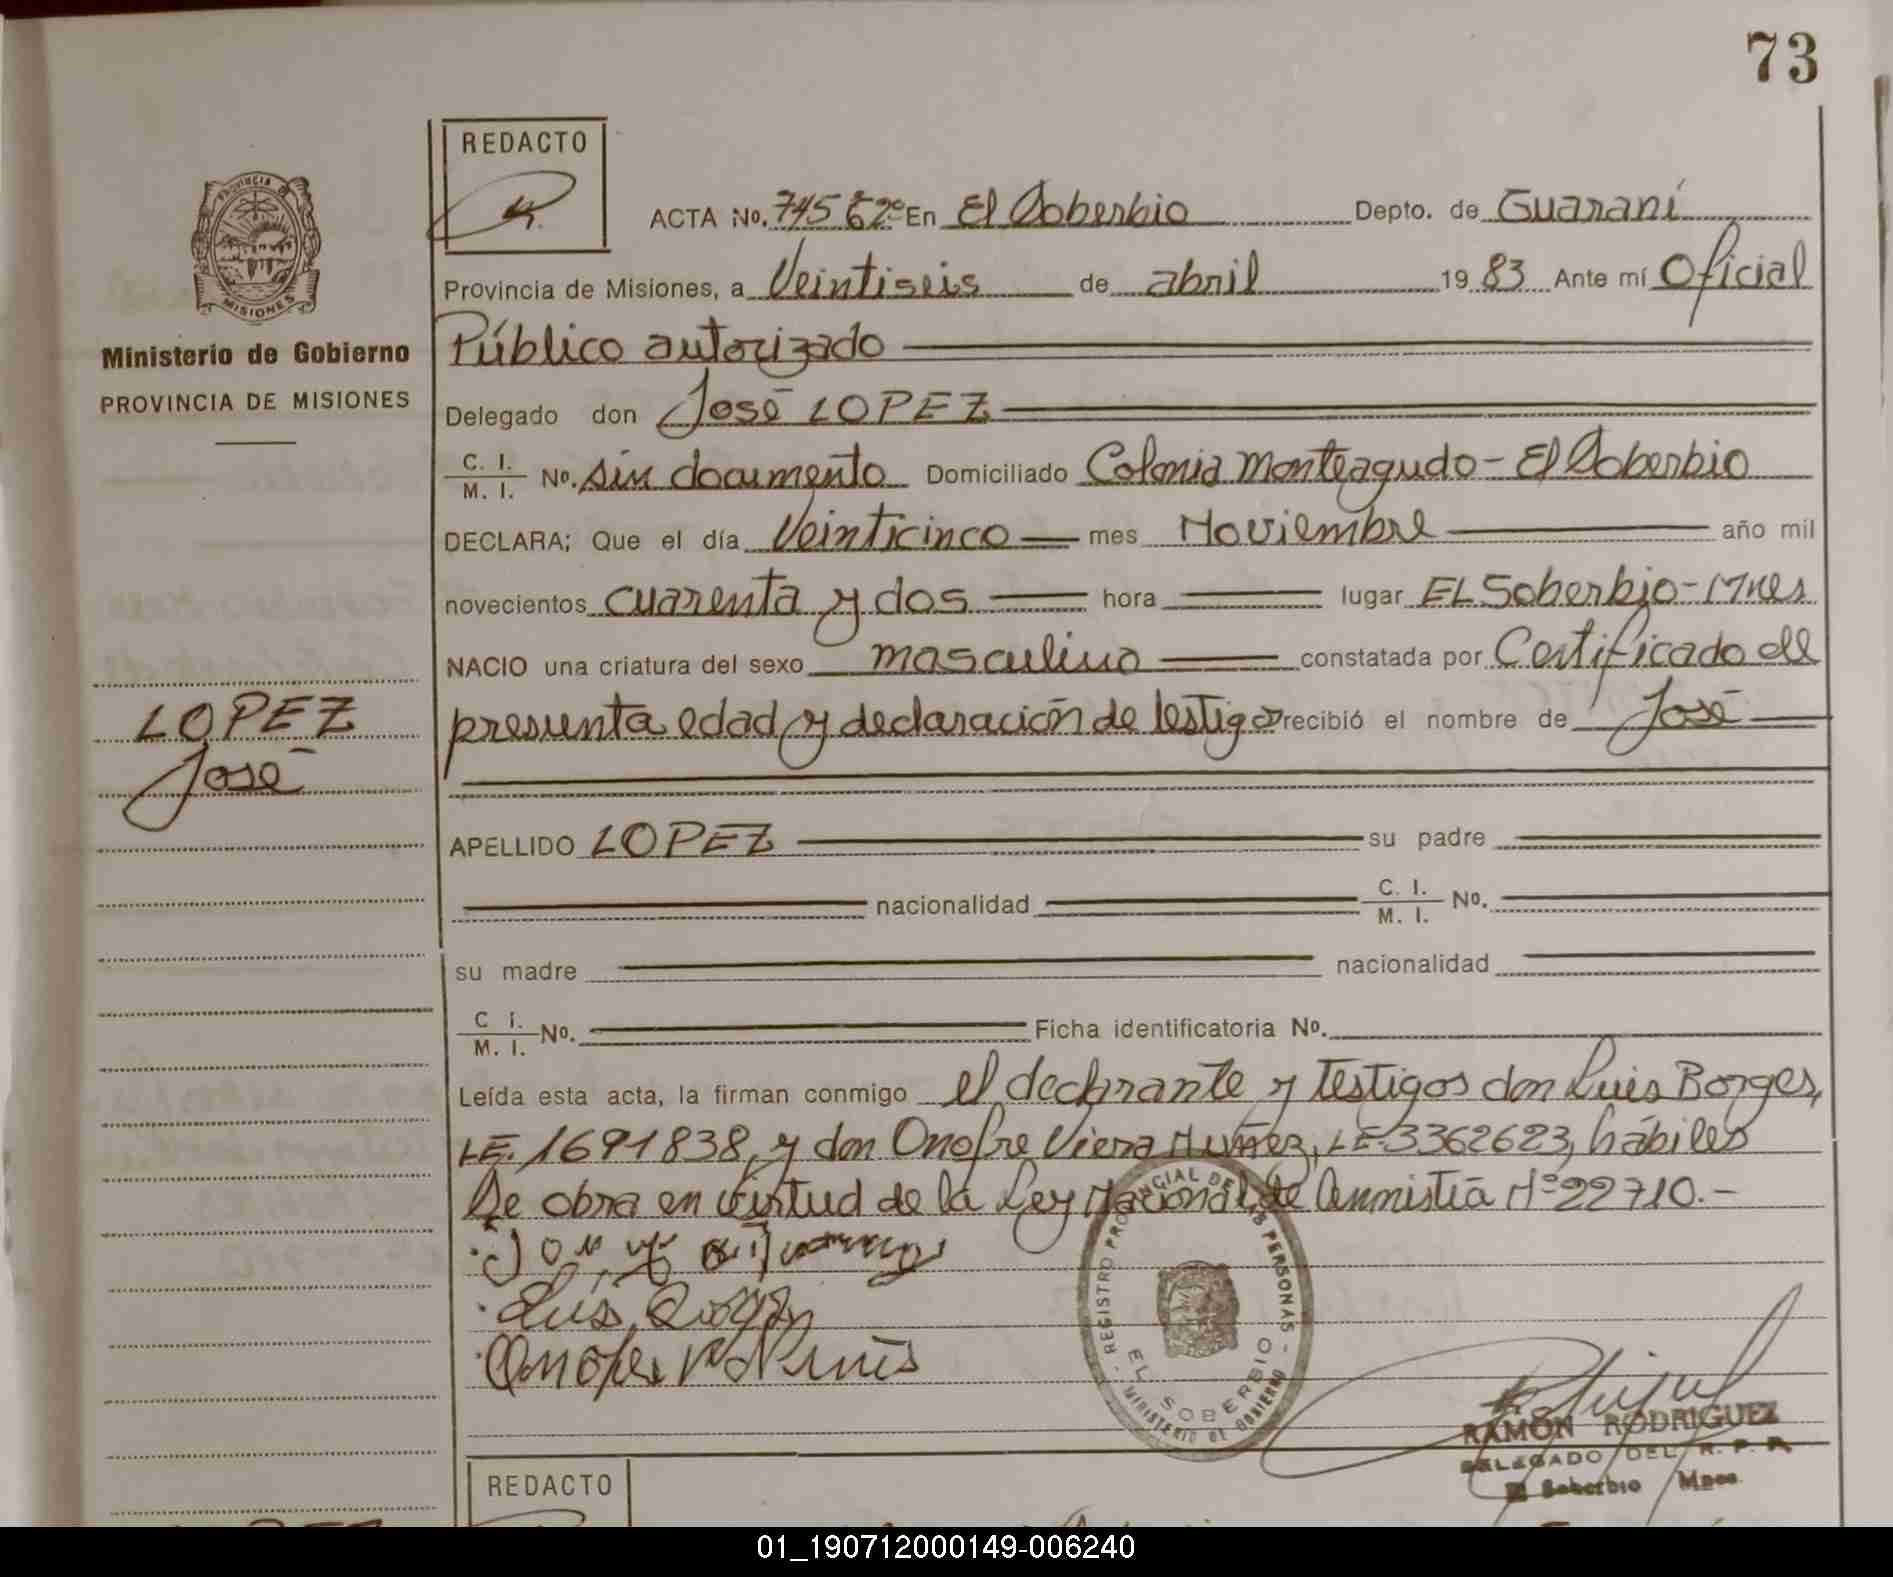 73
REDACTO
ACTA No. 745 Eº 2º En El Soberbio Depto. de Guaraní
Provincia de Misiones, a Veintiseis de abril 19 83 Ante mí Oficial
Público autorizado
Delegado don José LOPEZ
C. I. M. I. No. sin documento Domiciliado Colonia Monteagudo - El Soberbio
DECLARA; Que el día Veinticinco mes Noviembre año mil
novecientos cuarenta y dos hora lugar EL Soberbio - Mnes
NACIO una criatura del sexo masculino constatada por Certificado de
presunta edad y declaración de testigos recibió el nombre de José
APELLIDO LOPEZ su padre
nacionalidad C. I. M. I. No.
su madre nacionalidad
C I. M. I. No. Ficha identificatoria No.
Leída esta acta, la firman conmigo el declarante y testigos don Luis Borges,
LE. 1691838, y don Onofre Viera Nuñez, LE-3362623, hábiles
Se obra en virtud de la Ley Nacional de Amnistía Nº 22710.-
Luis Borges
REGISTRO PROVINCIAL DE LAS PERSONAS
EL SOBERBIO
MINISTERIO DE GOBIERNO
RAMON RODRIGUEZ
DELEGADO DEL R. P. P.
El Soberbio Mnes.
REDACTO
PROVINCIA DE
MISIONES
Ministerio de Gobierno
PROVINCIA DE MISIONES
LOPEZ
José
01_190712000149-006240